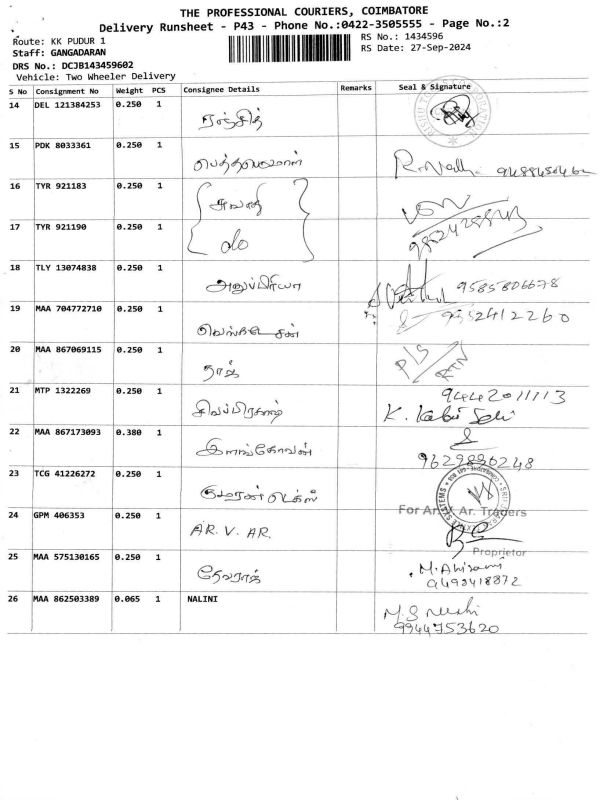 THE PROFESSIONAL COURIERS, COIMBATORE
Delivery Runsheet - P43 - Phone No.:0422-3505555 - Page No.:2
Route: KK PUDUR 1
RS No.: 1434596
Staff: GANGADARAN
RS Date: 27-Sep-2024
DRS No.: DCJB143459602
Vehicle: Two Wheeler Delivery
S No Consignment No Weight PCS Consignee Details Remarks Seal & Signature
14 DEL 121384253 0.250 1 ரஞ்சித்
15 PDK 8033361 0.250 1
16 TYR 921183 0.250 1
17 TYR 921190 0.250 1 do
18 TLY 13074838 0.250 1 அனுப்பிரியா 9585806678
19 MAA 704772710 0.250 1 வெங்கடேசன் 9552412260
20 MAA 867069115 0.250 1 நாஷ்
21 MTP 1322269 0.250 1 சிவப்பிரகாஷ் 9442011113
22 MAA 867173093 0.380 1 இளங்கோவன் 9629830248
23 TCG 41226272 0.250 1 குமரன் டெக்ஸ்
24 GPM 406353 0.250 1 AR. V. AR. For Ar. V. Ar. Traders
Proprietor
25 MAA 575130165 0.250 1 தேவராஜ் M. Abirami
9493418872
26 MAA 862503389 0.065 1 NALINI
9944753620